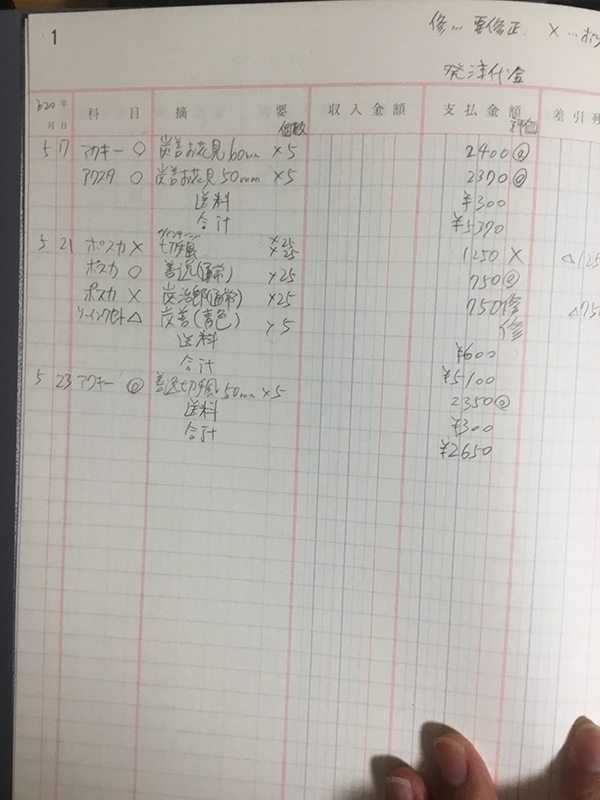 1
修… 要修正. ×…ボツ
発注代金
2020年 科 目 摘 要 収入金額 支払金額 差引残
月 日 個数 評価
5 17 アクキー ○ 炭善お花見 60mm ×5 2400 ◎
アクスタ ○ 炭善お花見 50mm ×5 2370 ◎
送料 ¥300
合計 ¥5370
×25
5 21 ポスカ × 切り風 ×25 1250 × △125
ポスカ ○ 善逸(通常) ×25 750 ◎
ポスカ × 炭治郎(通常) ×25 750 修 △750
△ 炭善(青色) ×5 修
送料 ¥600
合計 ¥5100
5 23 アクキー ◎ 善逸 50mm ×5 2350 ◎
送料 ¥300
合計 ¥2650